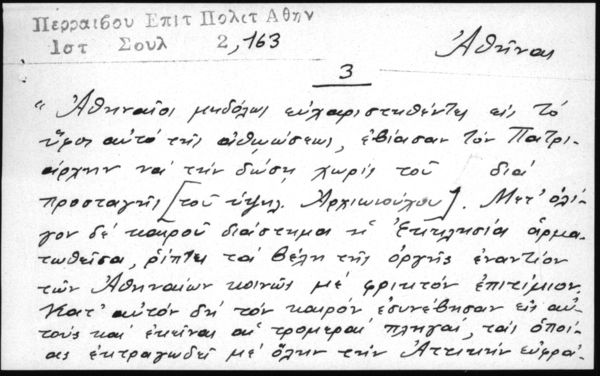 Περραιβου Επιτ Πολιτ Αθην
1στ Σουλ 2,163
Ἀθῆναι
3
"Ἀθηναῖοι μηδόλως εὐχαριστηθέντες εἰς τό
ὕφος αὐτό τῆς ἀθωώσεως, ἐβίασαν τόν Πατρι-
άρχην νά τήν δώσῃ χωρίς τοῦ διά
προσταγῆς [τοῦ ὑψηλ. Ἀρχιευνούχου]. Μετ' ὀλί-
γον δέ καιροῦ διάστημα ἡ Ἐκκλησία ἁρμα-
τωθεῖσα, ῥίπτει τά βέλη τῆς ὀργῆς ἐναντίον
τῶν Ἀθηναίων κοινῶς μέ φρικτόν ἐπιτίμιον.
Κατ' αὐτόν δή τόν καιρόν ἐσυνέβησαν εἰς αὐ-
τούς καί ἐκεῖναι αἱ τρομεραί πληγαί, τάς ὁποί-
ας ἐκτραγωδεῖ μέ ὅλην τήν Ἀττικήν εὐφρά-